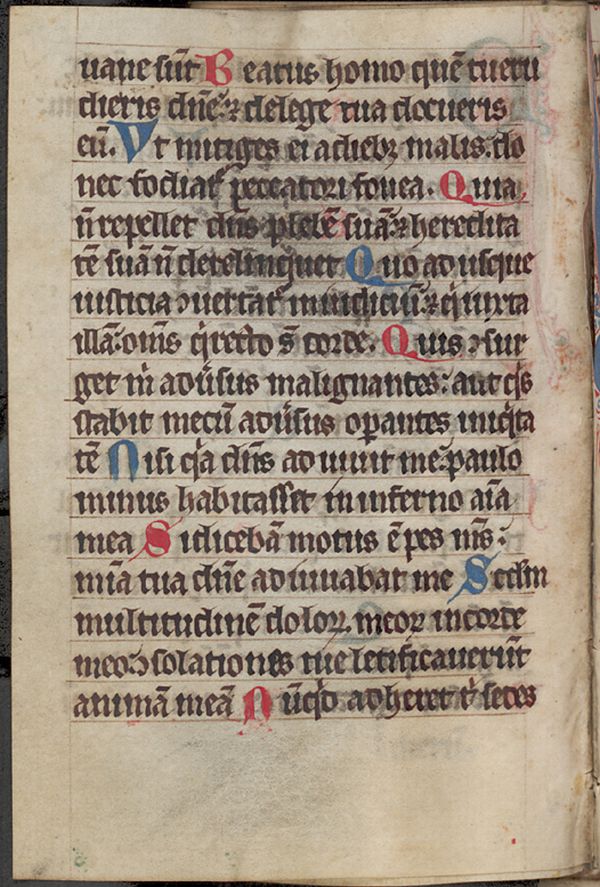 uane sūt Beatus homo quē tu eru
dieris dn̄e: ⁊ de lege tua docueris
eū. Vt mitiges ei a dieb⁊ malis: do
nec fodiat᷑ peccatori fouea. Quia
n̄ repellet dn̄s plebē suā: ⁊ heredita
tē suā n̄ derelinquet Quo adusque
iusticia ꝯuertat᷑ in iudiciū: ⁊ q̇ iuxta
illā: om̄s q̇ recto sт̄ corde. Quis ꝯsur
get ṁ adūsus malignantes: aut q̇s
stabit mecū adūsus oꝑantes iniq̇ta
tē Nisi q̇a dn̄s adiuuit me: paulo
minus habitasset in inferno aīa
mea Si dicebā motus ē pes m̄s:
mīa tua dn̄e adiuuabat me Scd̄m
multitudinē doloꝝ meoꝝ in corde
meo: ꝯsolationes tue letificauerūt
animā meā Nūq̇d adheret ṫ sedes